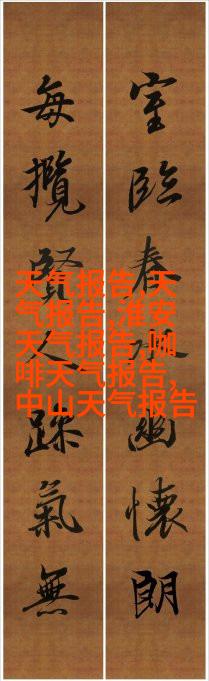 室臨春水幽懷朗
每攬賢氣無
天气报告,天
气报告,淮安
天气报告,咖
啡天气报告,
中山天气报告